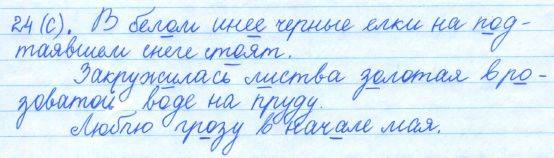 24(с). В белом инее черные елки на под-
таявшем снеге стоят.
Закружилась листва золотая в ро-
зоватой воде на пруду.
Люблю грозу в начале мая.